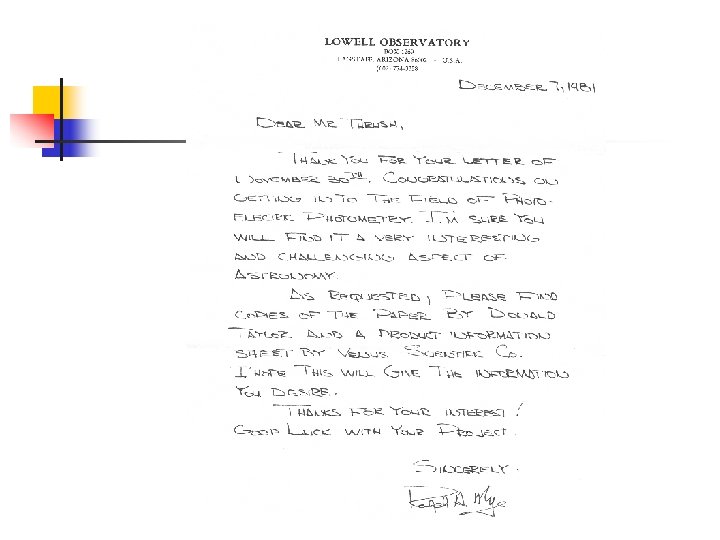 LOWELL OBSERVATORY
BOX 1269
FLAGSTAFF, ARIZONA 86001 - U.S.A.
(602) 774-3358
DECEMBER 7, 1981
DEAR MR THRUSH,
THANK YOU FOR YOUR LETTER OF
NOVEMBER 30TH. CONGRATULATIONS ON
GETTING INTO THE FIELD OF PHOTO-
ELECTRIC PHOTOMETRY. I'M SURE YOU
WILL FIND IT A VERY INTERESTING
AND CHALLENGING ASPECT OF
ASTRONOMY.
AS REQUESTED, PLEASE FIND
COPIES OF THE PAPER BY DONALD
TAYLOR AND A PRODUCT INFORMATION
SHEET BY VENUS SCIENTIFIC CO.
I HOPE THIS WILL GIVE THE INFORMATION
YOU DESIRE.
THANKS FOR YOUR INTEREST!
GOOD LUCK WITH YOUR PROJECT.
SINCERELY.